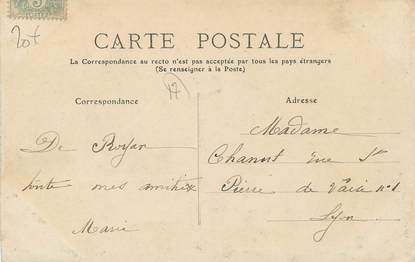 5
20f
CARTE POSTALE
La Correspondance au recto n'est pas acceptée par tous les pays étrangers
(Se renseigner à la Poste)
17
Correspondance
De Royan
toute mes amitiés
Marie
Adresse
Madame
Chanut rue St
Pierre de Vaise n° 1
Lyon